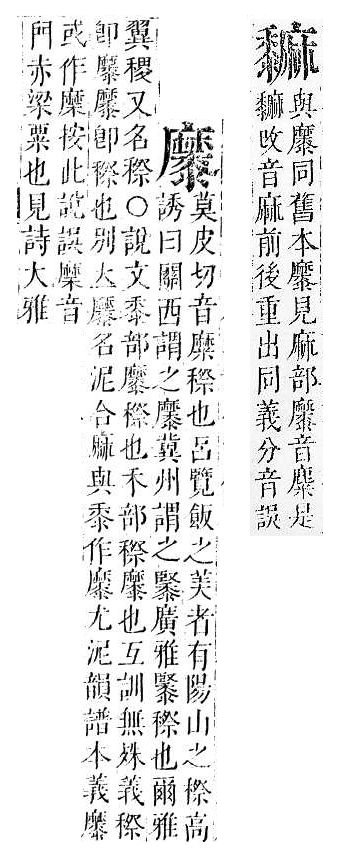 𪐎
與𪎭同舊本𪎭見麻部𪎭音糜是
𪐎收音麻前後重出同義分音誤
𪎭
莫皮切音糜穄也呂覽飯之美者有陽山之穄高
誘曰關西謂之𪎭冀州謂之䵖廣雅䵖穄也爾雅
翼稷又名穄○說文黍部𪎭穄也禾部穄𪎭也互訓無殊義穄
卽𪎭𪎭卽穄也別大𪎭名泥合麻與黍作𪎭尤泥韻譜本義𪎭
或作穈按此說誤穈音
門赤梁粟也見詩大雅